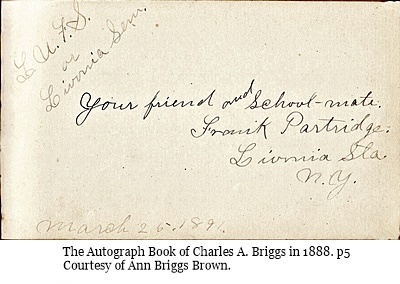 L U. F. S.
or
Livonia Sem.
Your friend and School-mate.
Frank Partridge.
Livonia Sta.
N.Y.
March 25. 1891.
The Autograph Book of Charles A. Briggs in 1888. p5
Courtesy of Ann Briggs Brown.